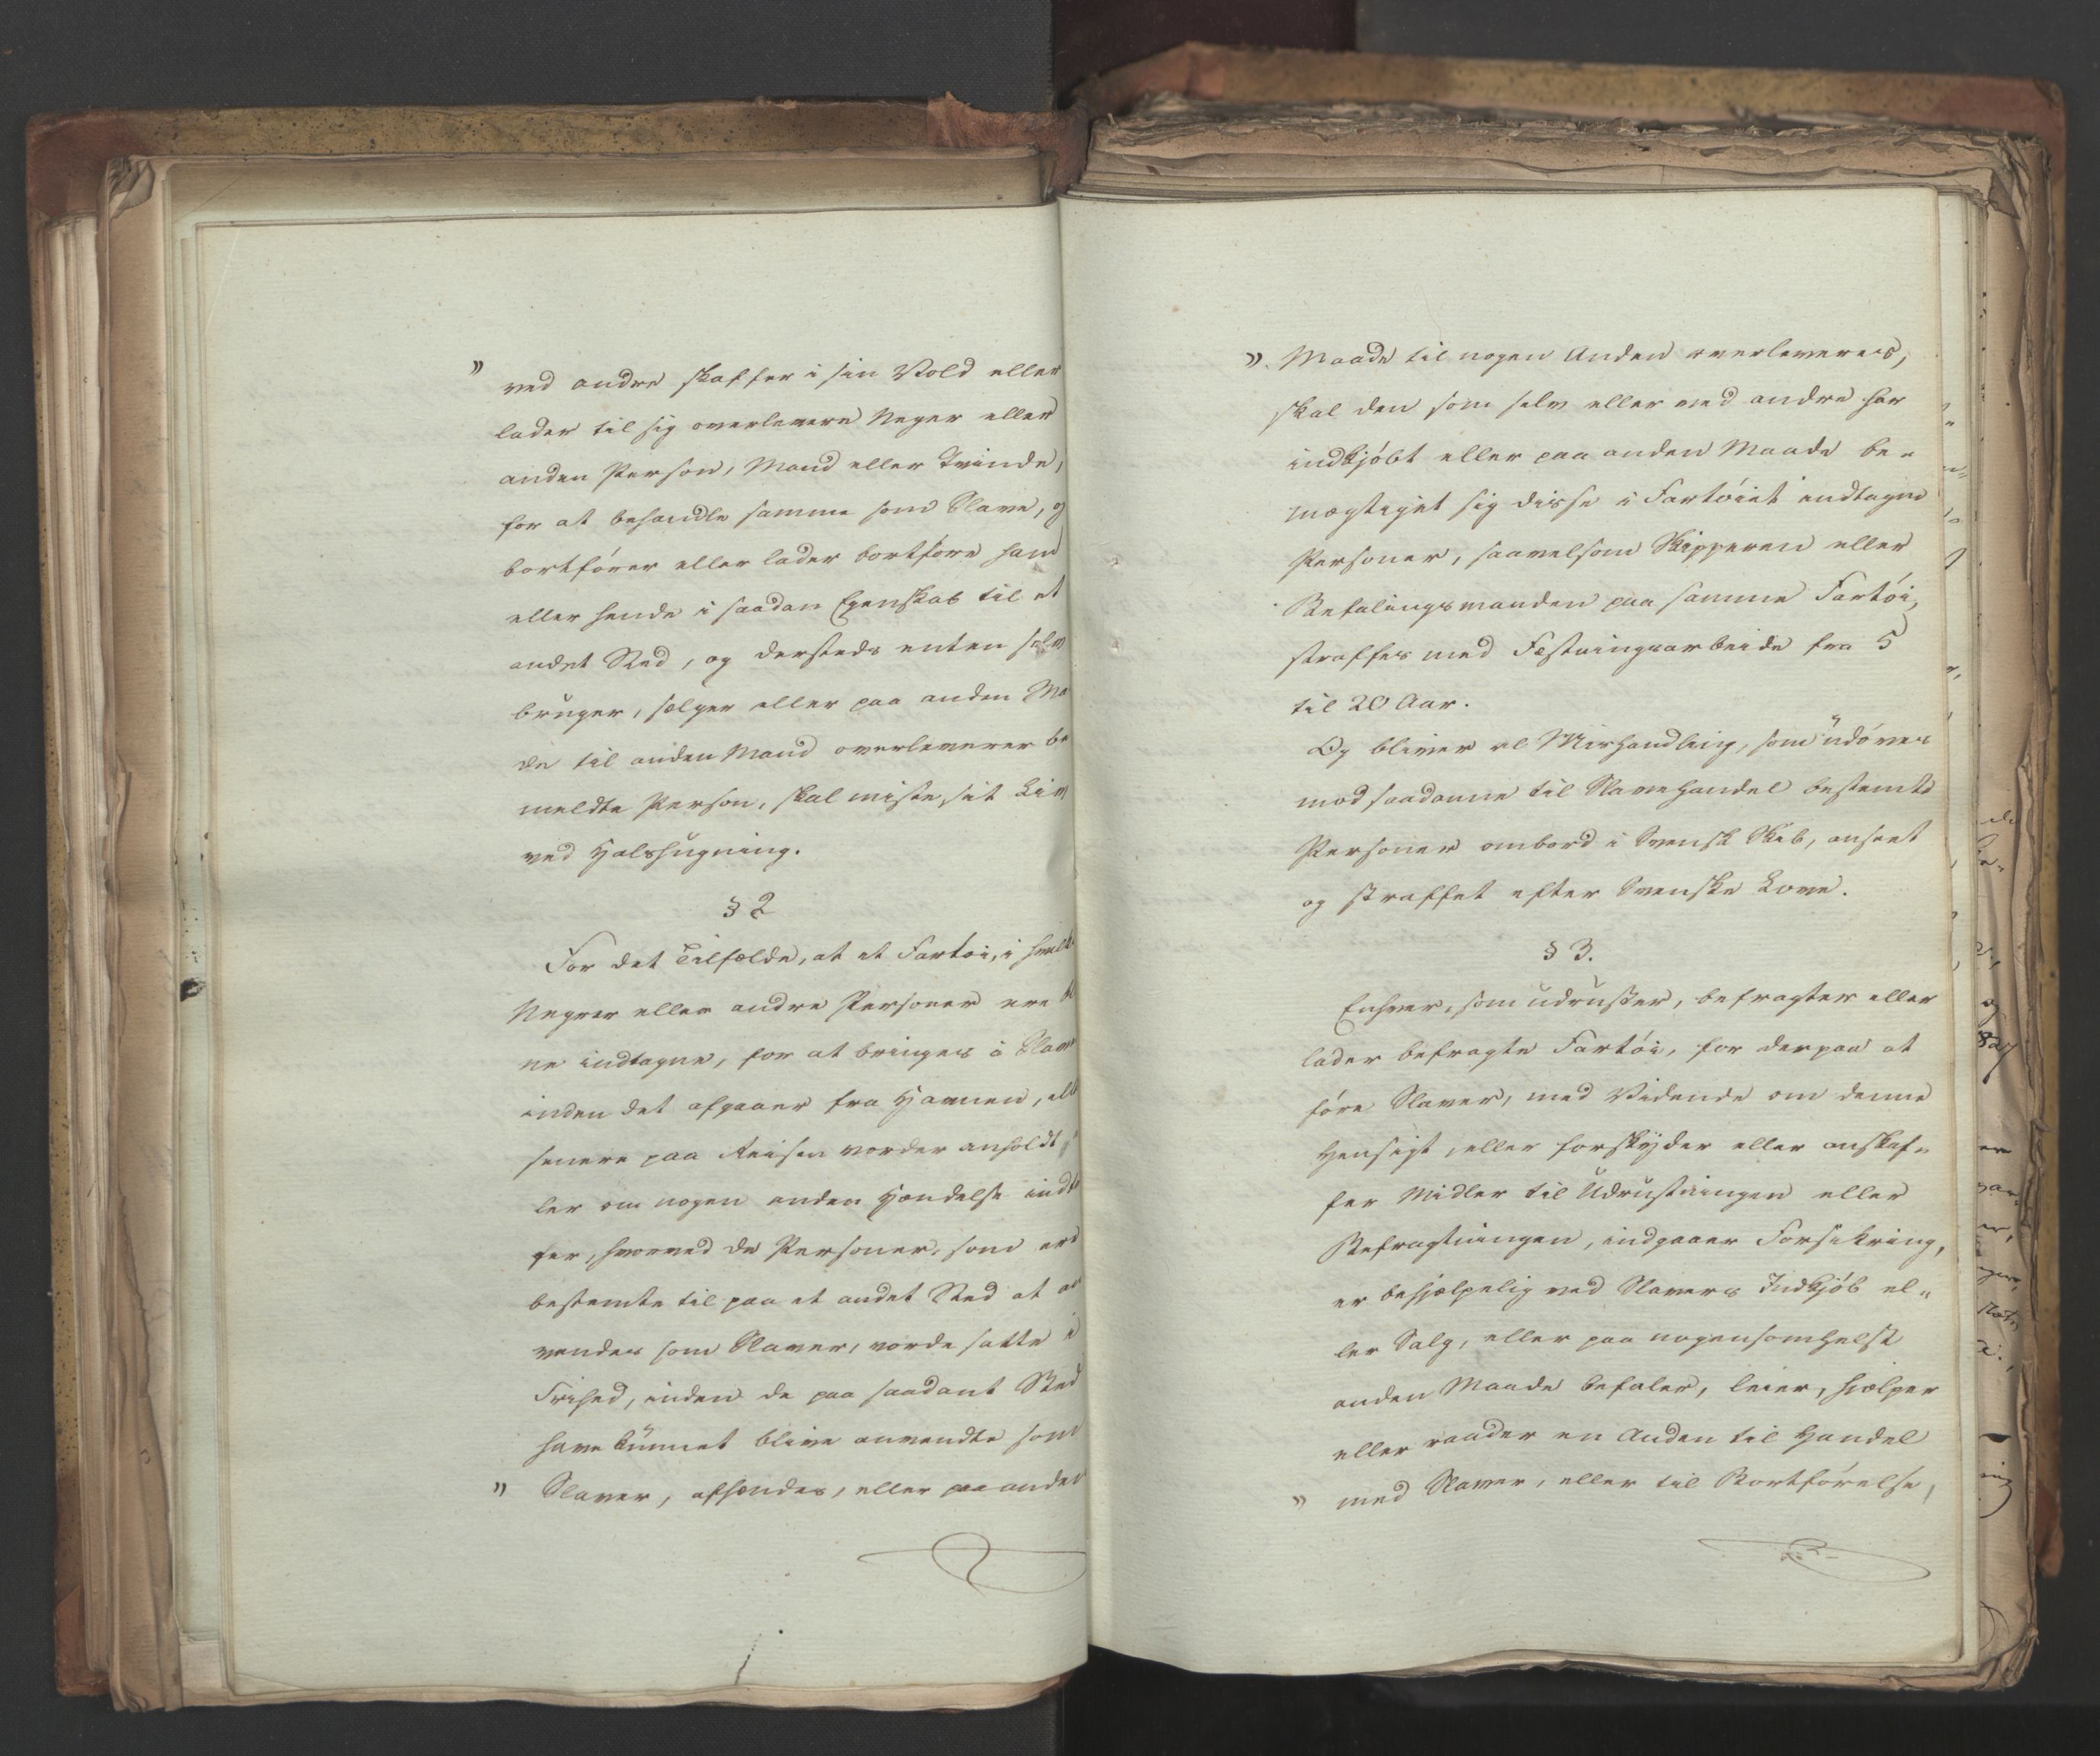 " ved andre skaffer i sin Vold eller
lader til sig overlevere Neger eller
anden Person, Mand eller Qvinde,
for at behandle samme som Slave, og
bortfører eller lader bortføre ham
eller hende i saadan Egenskab til et
andet Sted, og dersteds enten selv
bruger, sælger eller paa anden Ma
de til anden Mand overleverer be
meldte Person, skal miste sit Liv
ved Halshugning.
§ 2
For det Tilfælde, at et Fartøi, i hvilk
Negrer eller andre Personer ere
ne indtagne, for at bringes i Slave
inden det afgaaer fra Havnen, ell
senere paa Reisen vorder anholdt
ler om nogen anden Hændelse indt
fer, hvorved de Personer, som ere
bestemte til paa et andet Sted at an
vendes som Slaver, vorde satte i
Frihed, inden de paa saadant Sted
have kunnet blive anvendte som
" Slaver, afhændes, eller paa anden
". Maade til nogen Anden overleveres,
skal den som selv eller ved andre har
indkjøbt eller paa anden Maade be„
mægtiget sig disse i Fartøiet indtagne
Personer, saavelsom Skipperen eller
Befalingsmanden paa samme Fartøi,
straffes med Fæstningsarbeide fra 5
til 20 Aar.
Og bliver al Mishandling, som udøves
mod saadanne til Slavehandel bestemte
Personer ombord i Svensk Skib, anseet
og straffet efter Svenske Love.
§ 3.
Enhver, som udruster, befragter eller
lader befragte Fartøi, for derpaa at
føre Slaver, med Vidende om denne
Hensigt, eller forskyder eller anskaf„
fer Midler til Udrustningen eller
Befragtningen, indgaaer Forsikring,
er behjælpelig ved Slavers Indkjøb el„
ler Salg, eller paa nogensomhelst
anden Maade befaler, leier, hjælper
eller raader en Anden til Handel
" med Slaver, eller til Bortførelse,